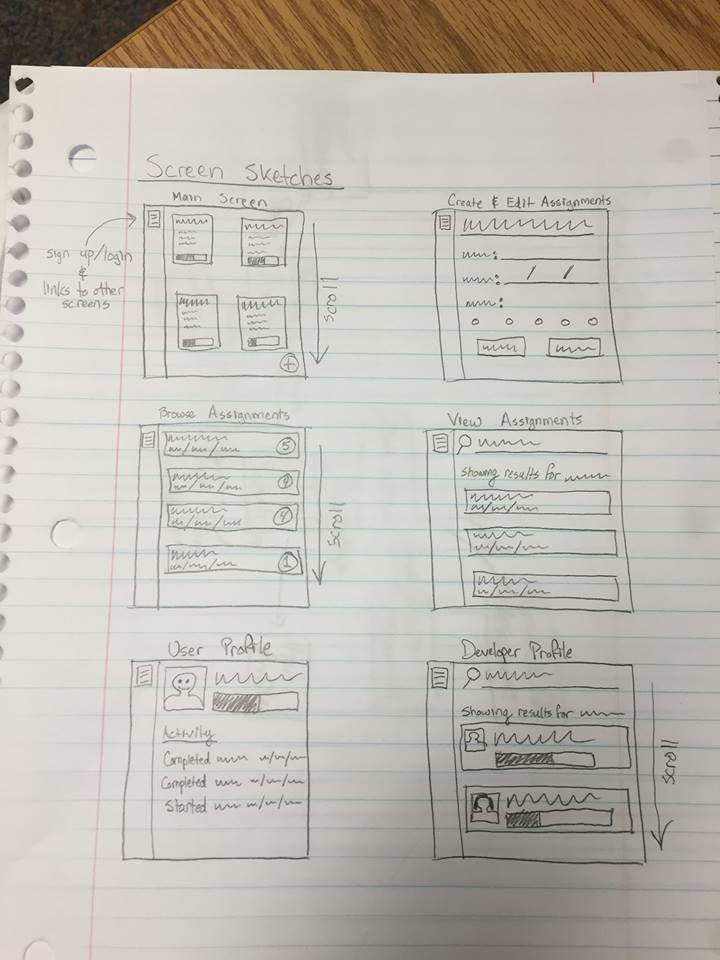 Screen Sketches
Main Screen
sign up/login
&
links to other
screens
scroll
+
Create & Edit Assignments
:
: / /
:
Browse Assignments
5
4
1
scroll
View Assignments
showing results for
User Profile
Activity
Completed
Completed
Started
Developer Profile
Showing results for
scroll